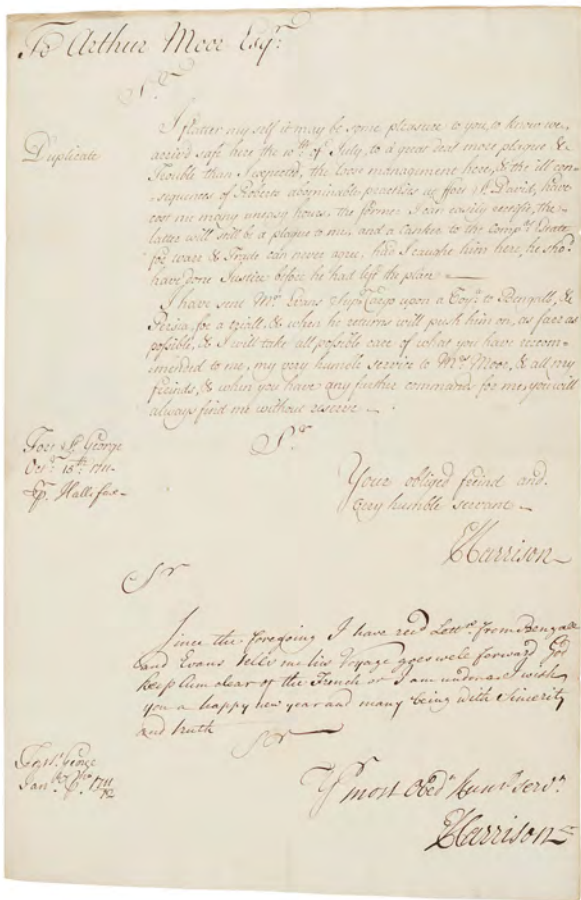 To Arthur Moor Esqr.
Sr.
Duplicate
I flatter my self it may be some pleasure to you, to know we
arrivd safe here the of July, to a great deal more plague &
Trouble than I expected, the loose managment here, & the ill con=
sequences of Roberts abominable practices at fort St. David, have
cost me many uneasy hours, the former I can easily rectifie, the
latter will still be a plague to me, and a canker to the compas. Estate
for warr & Trade can never agree, had I caught him here, he shod.
have done Justice before he had left the place
I have sent Mr. Evans Cargo upon a Voya. to Bengall, &
Persia, for a tryall, & when he returns will push him on, as far as
possible, & I will take all possible care of what you have recom=
mended to me, my very humble service to Mrs. Moor, & all my
freinds, & when you have any further command for me, you will
always find me without reserve
Sr
Fort St. George
Octr. 15th. 1711
Hallifax
Your obliged freind and
very humble servant
EHarrison
Sr
Since the foregoing I have recd Lettrs. from Bengall
and Evans tells me his Voyage goes well forward God
keep him clear of the French or I am undone. I wish
you a happy new year and many being with Sincerity
and truth
Sr
Fort St. George
Yr most Obedt. humb. servt.
EHarrison